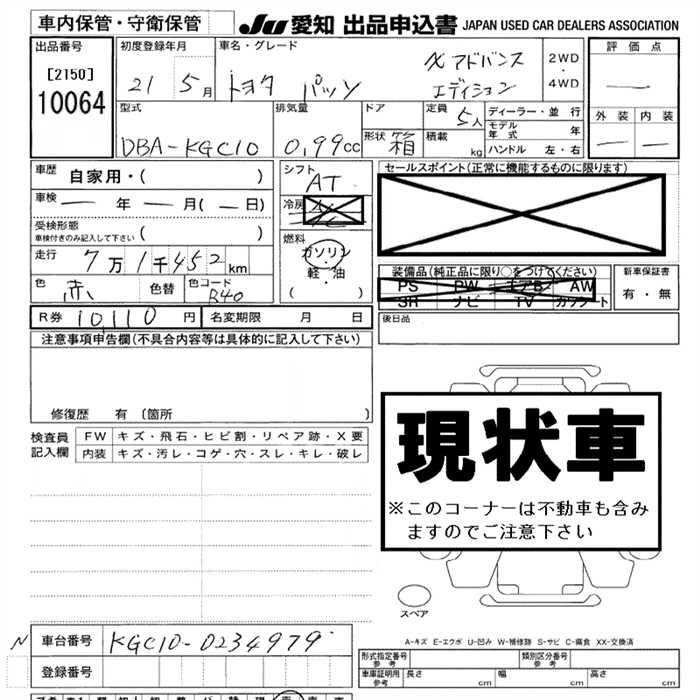 車内保管・守衛保管
JU 愛知 出品申込書 JAPAN USED CAR DEALERS ASSOCIATION
出品番号
[2150]
10064
初度登録年月
21 5月
車名・グレード
トヨタ パッソ
X アドバンス
エディション
2WD
・
4WD
評価点
—
外装 内装
— —
型式
DBA-KGC10
排気量
0,99cc
ドア
形状 箱
定員
5人
積載
kg
ディーラー・並行
モデル
年式 年
ハンドル 左・右
車歴
自家用・( )
車検
— 年 — 月(— 日)
受検形態
車検付きのみ記入して下さい ( )
走行
7万1千452km
色
赤
色替
色コード
R40
シフト
AT
冷房
燃料
ガソリン
・
軽・油
( )
セールスポイント(正常に機能するものに限ります)
装備品(純正品に限り○をつけてください)
PS PW エアB AW
SR ナビ TV カワシート
新車保証書
有・無
後日品
R券 10,110 円
名変期限 月 日
注意事項申告欄(不具合内容等は具体的に記入して下さい)
修復歴 有〔箇所 〕
検査員
記入欄
FW キズ・飛石・ヒビ割・リペア跡・X要
内装 キズ・汚レ・コゲ・穴・スレ・キレ・破レ
現状車
※このコーナーは不動車も含み
ますのでご注意下さい
スペア
A-キズ E-エクボ U-凹み W-補修跡 S-サビ C-腐食 XX-交換済
N 車台番号 KGC10-0234979
登録番号
形式指定番号
参考
類別区分番号
参考
車庫証明用
参考
長さ
cm
幅
cm
高さ
cm